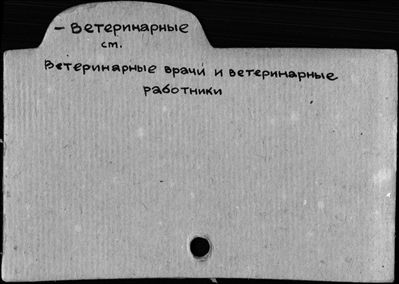 – Ветеринарные
ст.
Ветеринарные врачи и ветеринарные
работники